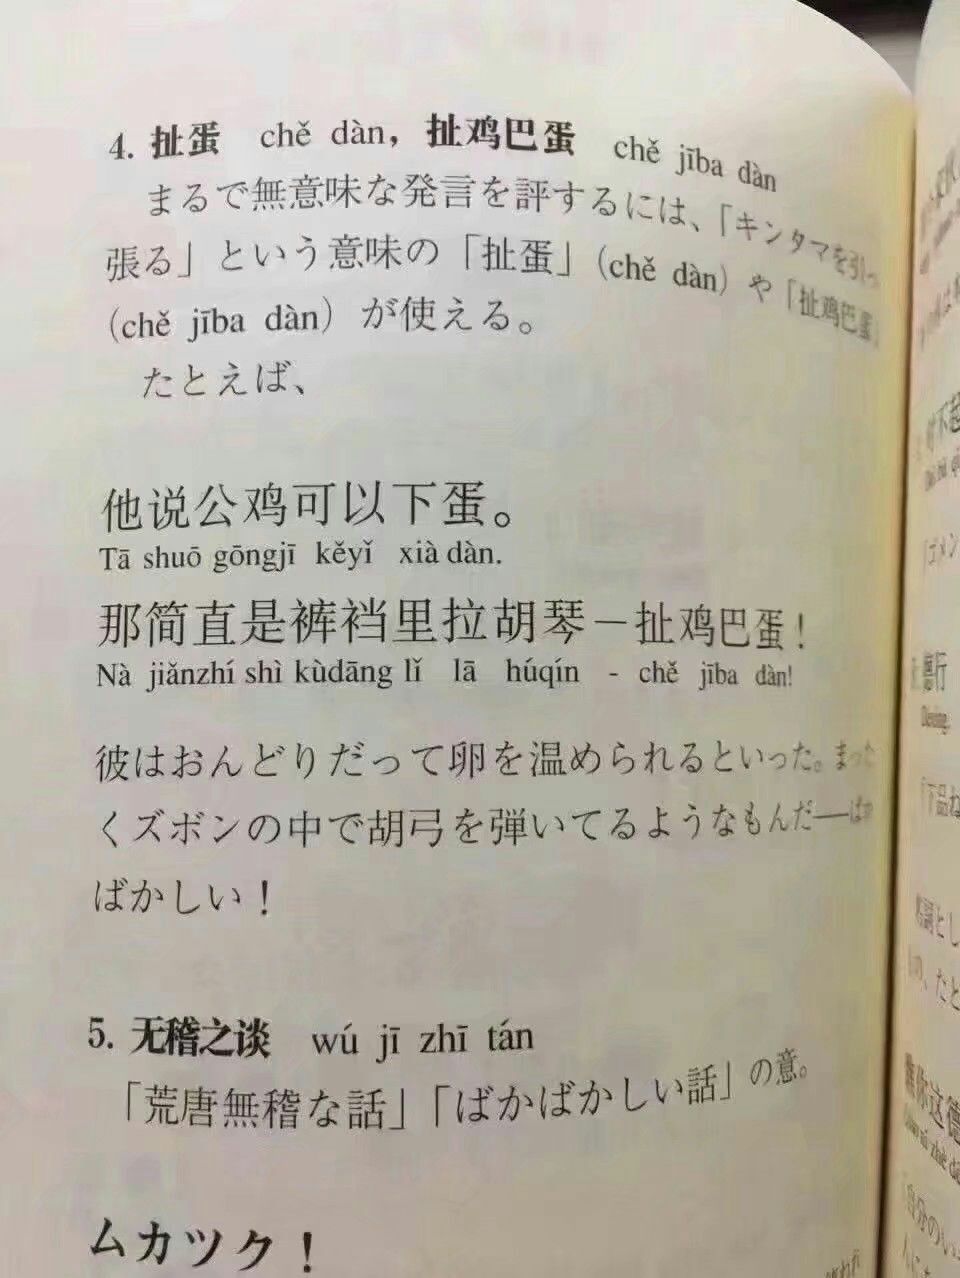 4. 扯蛋 chě dàn，扯鸡巴蛋 chě jība dàn
まるで無意味な発言を評するには、「キンタマを引っ
張る」という意味の「扯蛋」（chě dàn）や「扯鸡巴蛋」
（chě jība dàn）が使える。
たとえば、
他说公鸡可以下蛋。
Tā shuō gōngjī kěyǐ xià dàn.
那简直是裤裆里拉胡琴－扯鸡巴蛋！
Nà jiǎnzhí shì kùdāng lǐ lā húqín - chě jība dàn!
彼はおんどりだって卵を温められるといった。まった
くズボンの中で胡弓を弾いてるようなもんだ――ばか
ばかしい！
5. 无稽之谈 wú jī zhī tán
「荒唐無稽な話」「ばかばかしい話」の意。
ムカツク！